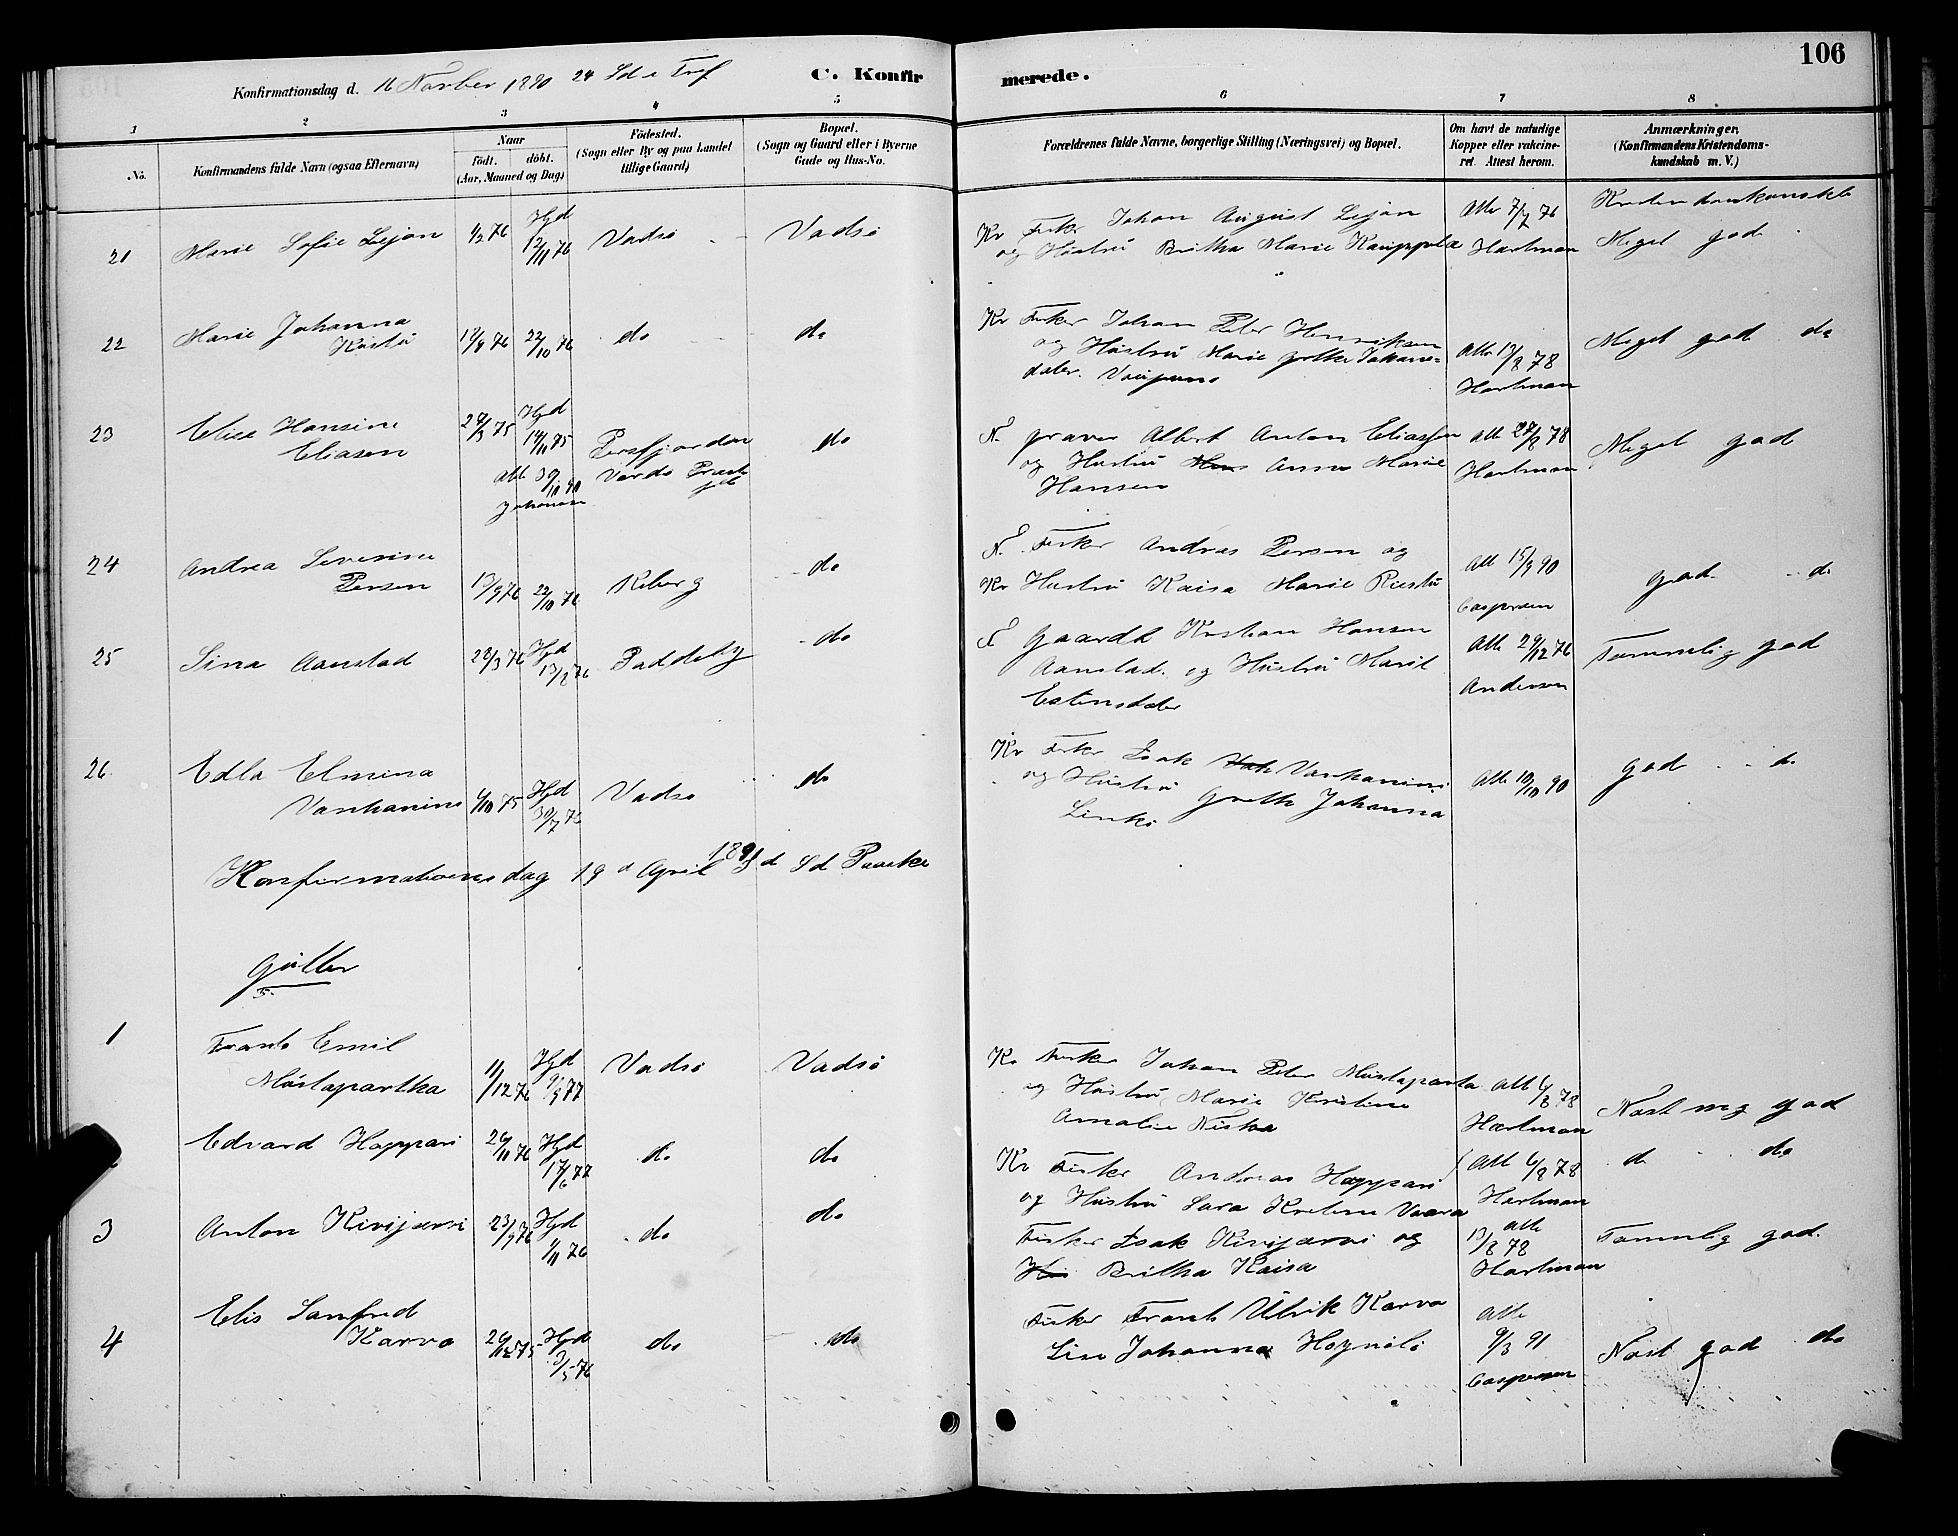 106
C. Konfirmerede.
Konfirmationsdag d. 16 Novber 1890 24 Sd e Tref
1 2 3 4 5 6 7 8
No.
Konfirmandens fulde Navn (ogsaa Efternavn)
Naar
födt. döbt.
(Aar, Maaned og Dag)
Födested.
(Sogn eller By og paa Landet
tillige Gaard)
Bopæl.
(Sogn og Gaard eller i Byerne
Gade og Hus-No.
Forældrenes fulde Navne, borgerlige Stilling (Næringsvei) og Bopæl.
Om havt de naturlige
Kopper eller vakcine-
ret. Attest herom.
Anmærkninger.
(Konfirmandens Kristendoms-
kundskab m. V.)
21 Marie Sofie Lejon 1/3 76 Hjd 12/11 76 Vadsö Vadsö
Kv Fisker Johan August Lejon
og Hustru Britha Marie Kauppila
Att 7/7 76
Hartman
Meget god
22 Marie Johanna
18/8 76 22/10 76 do do
Kv Fisker Johan Peter Henriksen
og Hustru Marie Johans-
dater
Att 13/8 78
Hartman
Meget god do
23 Elise Hansine
Eliasen 29/3 75 Hjd 14/11 75 Persfjorden do
Att 30/10 90 Vardö Præst
gjeld
Johansen
N. graver Albert Anton Eliassen
og Hustru Anne Marie
Hansen
Att 28/8 78
Hartman
Meget god
24 Andrea Severine
Persen 13/9 76 22/10 76 Kiberg do
N. Fisker Andras Persen og
Kv Hustru Kaisa Marie
Att 15/9 90
Caspersen
god do
25 Sina Aanstad 28/3 76 Hjd 13/8 76 Paddeby do
N Gaardb Kristian Hansen
Aanstad og Hustru Marit
Estensdater
Att 29/12 76
Andersen
Temmelig god
26 Edla Elmina
Vanhanine 6/10 75 Hjd 30/7 76 Vadsö do
Kv Fisker Isak Vanhanine
og Hustru Greth Johanna
Linko
Att 10/10 90
god do
Konfirmationsdag 19d April 1891 3d Sd Paaske
Gutter
1 Frants Emil
Mustaparttka 11/12 76 Hjd 9/9 77 Vadsö Vadsö
Kv Fisker Johan Peter Mustaparta
og Hustru Marie Kristine
Amalie Niska
Att 6/8 78
Hartman
Næst mg god
Edvard Happari 26/11 76 Hjd 17/6 77 do do
Kv Fisker Andreas Happari
og Hustru Sara Kristine Vaara
Att 6/8 78
Hartman
do do
3 Anton Kivijærvi 23/9 76 Hjd 9/11 76 do do
Fisker Isak Kivijærvi og
Britha Kaisa
Att
13/8 78
Hartman
Temmelig god.
4 Elis Sanfred
Karvo 26/12 75 Hjd 3/5 76 do do
Fisker Frants Ulrik Karvo
Lise Johanna
Att
9/3 91
Caspersen
Næst god do